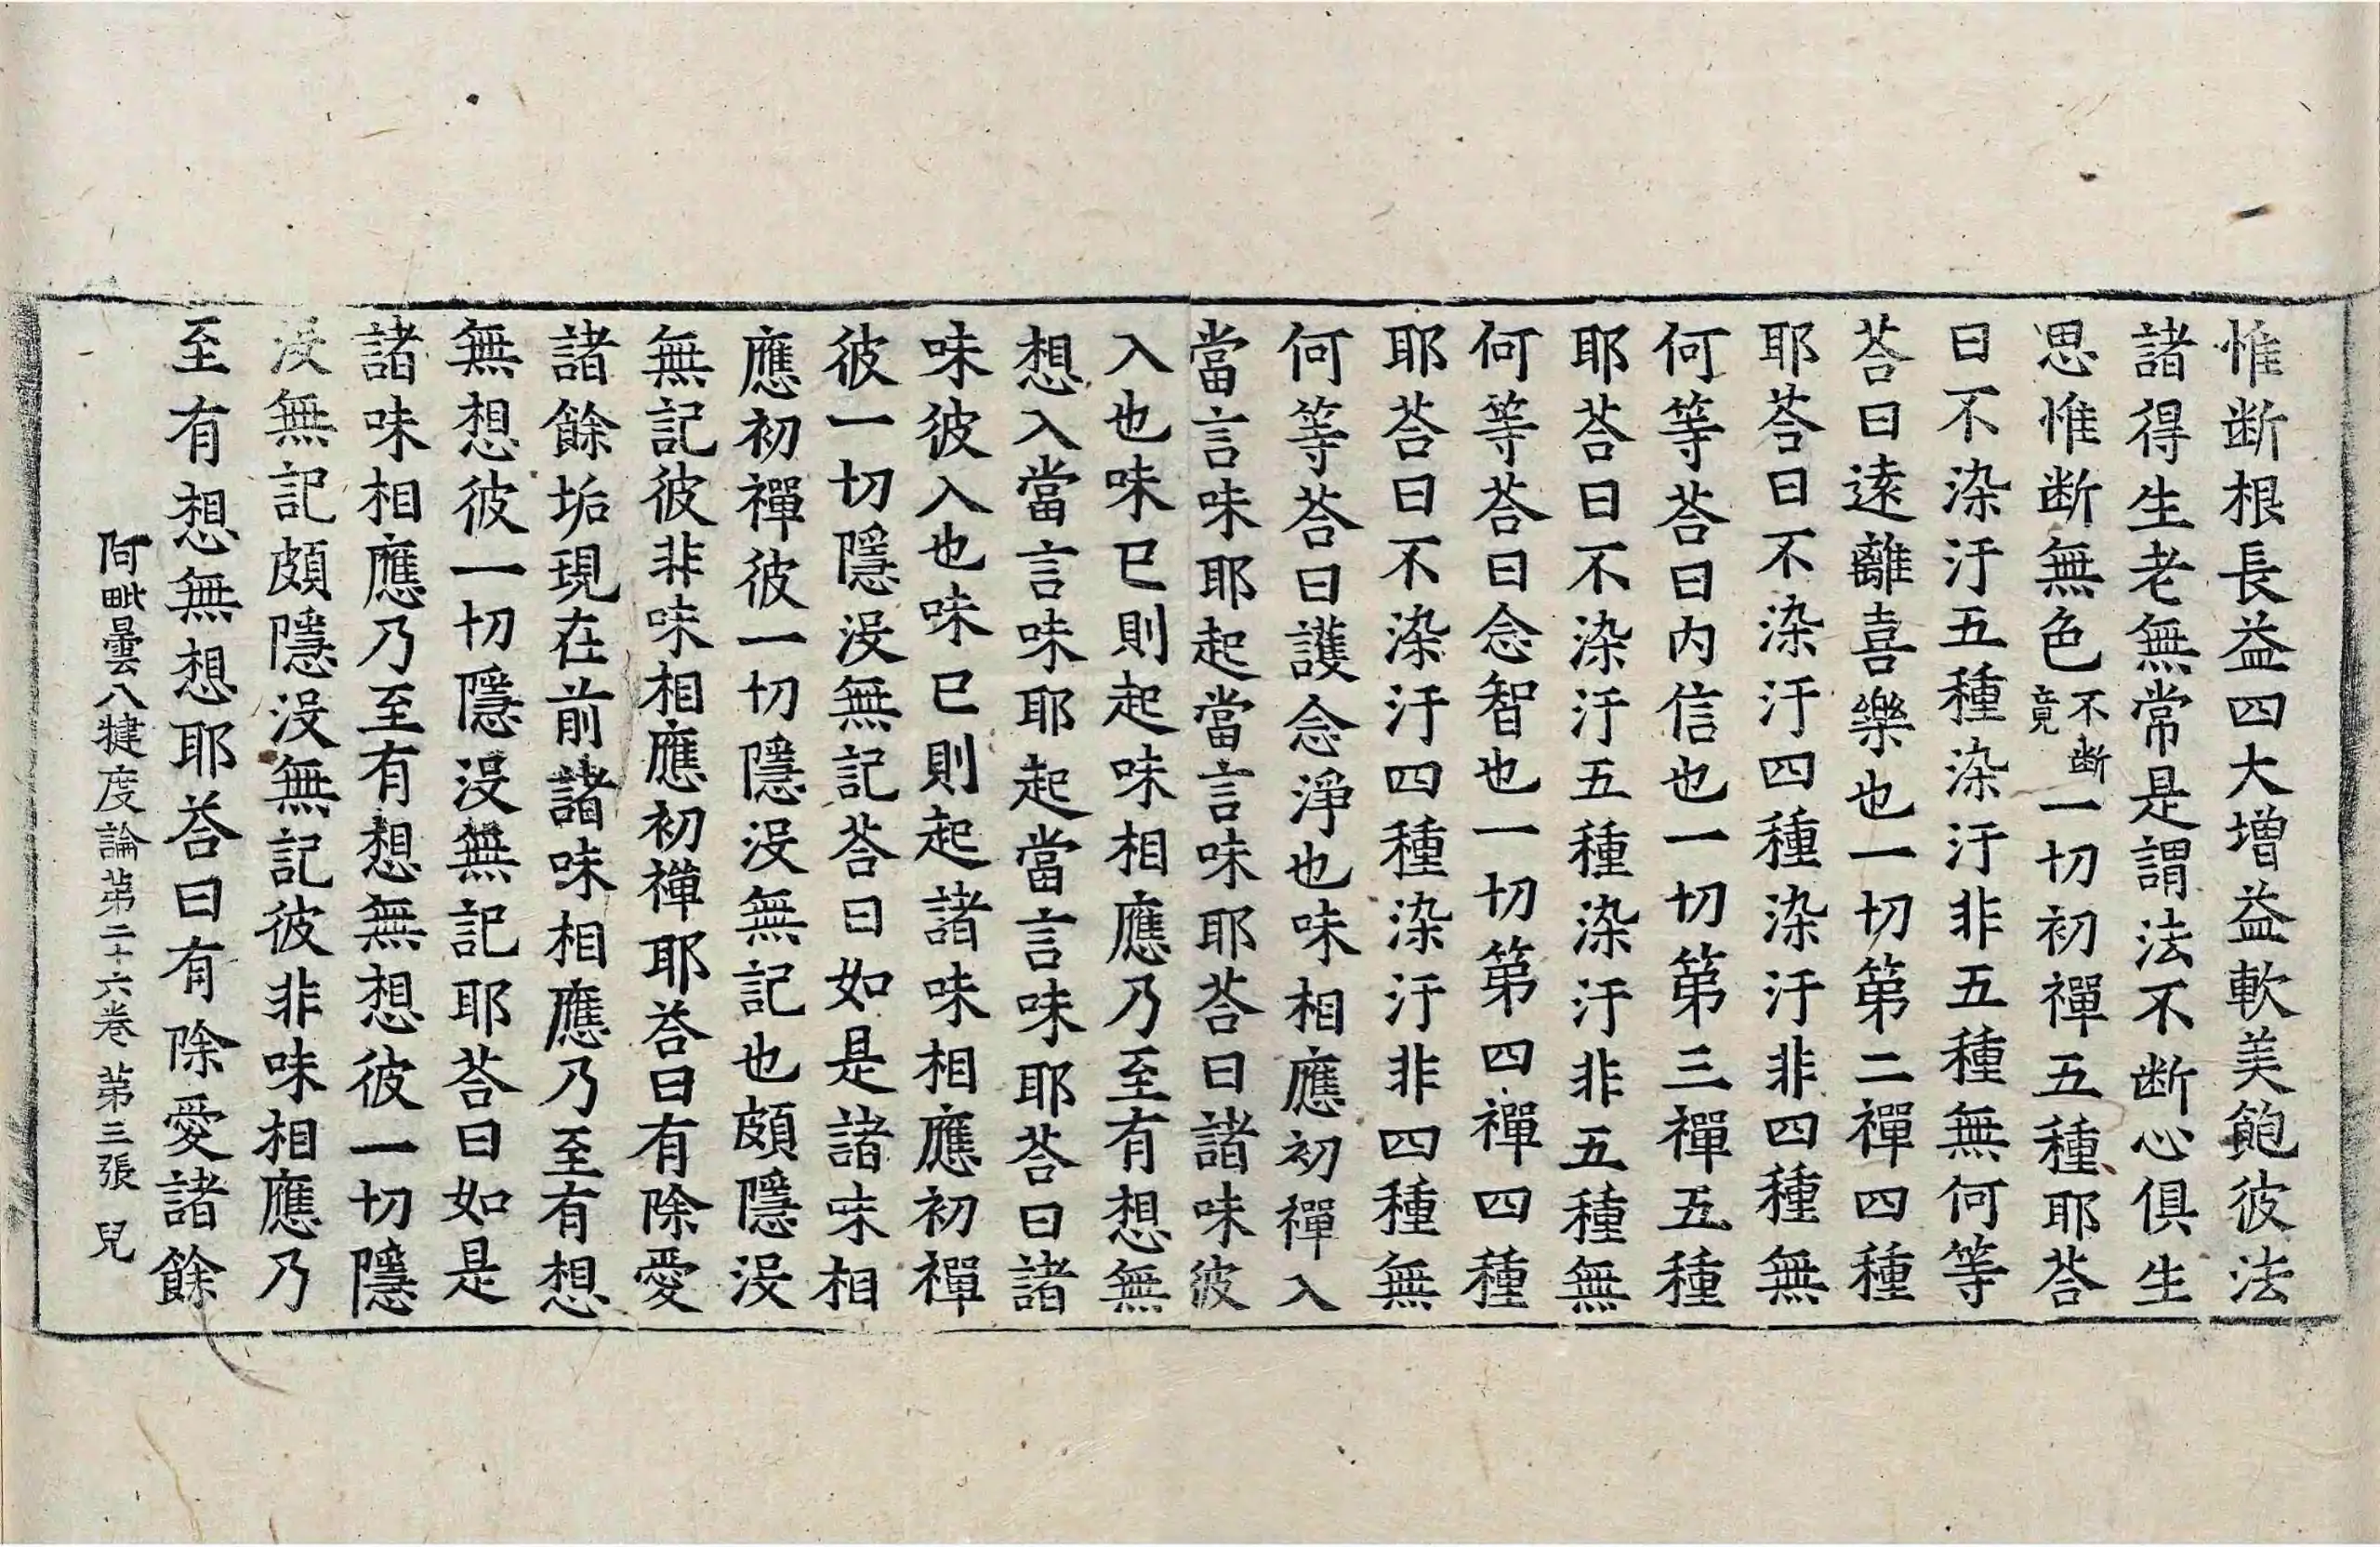 惟断根長益四大增益軟美飽彼法
諸得生老無常是謂法不断心俱生
思惟断無色不断竟一切初禪五種耶荅
曰不染汙五種染汙非五種無何等
荅曰逺離喜樂也一切第二禪四種
耶荅曰不染汙四種染汙非四種無
何等荅曰内信也一切第三禪五種
耶荅曰不染汙五種染汙非五種無
何等荅曰念智也一切第四禪四種
耶荅曰不染汙四種染汙非四種無
何等荅曰護念淨也味相應初禪入
當言味耶起當言味耶荅曰諸味彼
入也味已則起味相應乃至有想無
想入當言味耶起當言味耶荅曰諸
味彼入也味已則起諸味相應初禪
彼一切隱没無記荅曰如是諸味相
應初禪彼一切隱没無記也頗隱没
無記彼非味相應初禪耶荅曰有除愛
諸餘垢現在前諸味相應乃至有想
無想彼一切隱没無記耶荅曰如是
諸味相應乃至有想無想彼一切隱
没無記頗隱没無記彼非味相應乃
至有想無想耶荅曰有除愛諸餘
阿毗曇八犍度論苐二十六卷 苐三張 兒